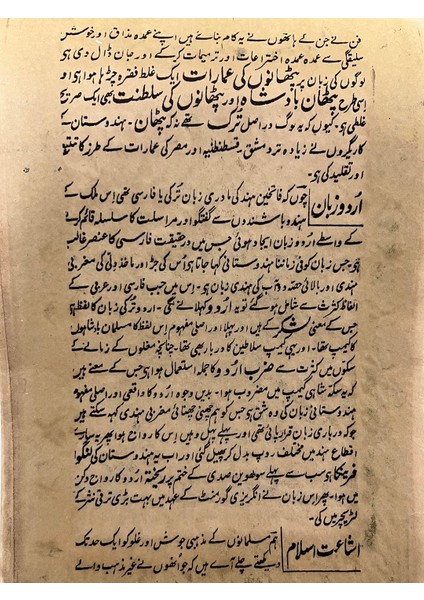 فن نے جن کے ہاتھوں نے یہ کام بنائے ہیں اپنے عمدہ مذاق اور خوش
سلیقگی سے عمدہ عمدہ اختراعات اور ترمیمات کر کے اور جان ڈال دی ہو
لوگوں کی زبان پر پٹھانوں کی عمارات ایک غلط فقرہ چڑہا ہوا ہو
اسی طرح پٹھان بادشاہ اور پٹھانوں کی سلطنت بھی ایک صریح
غلطی ہو۔ کیوں کہ یہ لوگ در اصل ترک تھے نہ کہ پٹھان۔ ہندوستان کے
کاریگروں نے زیادہ تر دمشق۔ قسطنطنیہ اور مصر کی عمارات کے طرز کا تتبع
اور تقلید کی ہو۔
اُردو زبان چوں کہ فاتحین ہند کی مادری زبان ترکی یا فارسی تھی اِس ملک کے
ہندو باشندوں سے گفتگو اور مراسلت کا سلسلہ قائم کرنے
کے واسطے اُردو زبان ایجاد ہوئی جس میں در حقیقت فارسی کا عنصر غالب
ہو جس زبان کو فی زماننا ہندوستانی کہا جاتا ہو اُس کی جڑ اور ماخذ دلی کی مغربی
ہندی اور بالائی حصہ دوآب کی ہندی زبان ہو۔ اِس میں جب فارسی اور عربی کے
الفاظ کثرت سے شامل ہو گئے تو یہ اُردو کہلانے لگی۔ اردو ترکی زبان کا لفظ ہو
جس کے معنی لشکر کے ہیں اور پہلا اور اصلی مفہوم اِس لفظ کا مسلمان بادشاہوں
کا کیمپ تھا۔ اور یہی کیمپ سلاطین کا دربار بھی تھا۔ چنانچہ مغلوں کے زمانے کے
سکوں میں کثرت سے ضرب اُردو کا جملہ استعمال ہوا ہو جس کے معنے ہیں
کہ یہ سکہ شاہی کیمپ میں مضروب ہوا۔ بدیں وجوہ اُردو کا واقعی اور اصلی مفہوم
ہندوستانی زبان کی وہ شق ہو جس کو ہم چھنی چھنائی مغربی ہندی کہہ سکتے ہیں
جو کہ درباری زبان قرار پائی تھی اور پہلے پہل وہیں اِس کا رواج ہوا پھر یہ سارے
اقطاع ہند میں مختلف روپ بدل کر پھیل گئی اور اب یہ ہندوستان کی لنگوا
فرینکا ہو سب سے پہلے سولھویں صدی کے ختم پر ریختہ اُردو کا رواج دکن
میں ہوا۔ پھر اِس زبان نے انگریزی گورمنٹ کے عہد میں بہت بڑی ترقی نثر کے
لٹریچر میں کی۔
اشاعت اسلام ہم مسلمانوں کے مذہبی جوش اور غلو کو ایک حد تک
دیکھتے چلے آئے ہیں کہ جو انھوں نے غیر مذہب والے